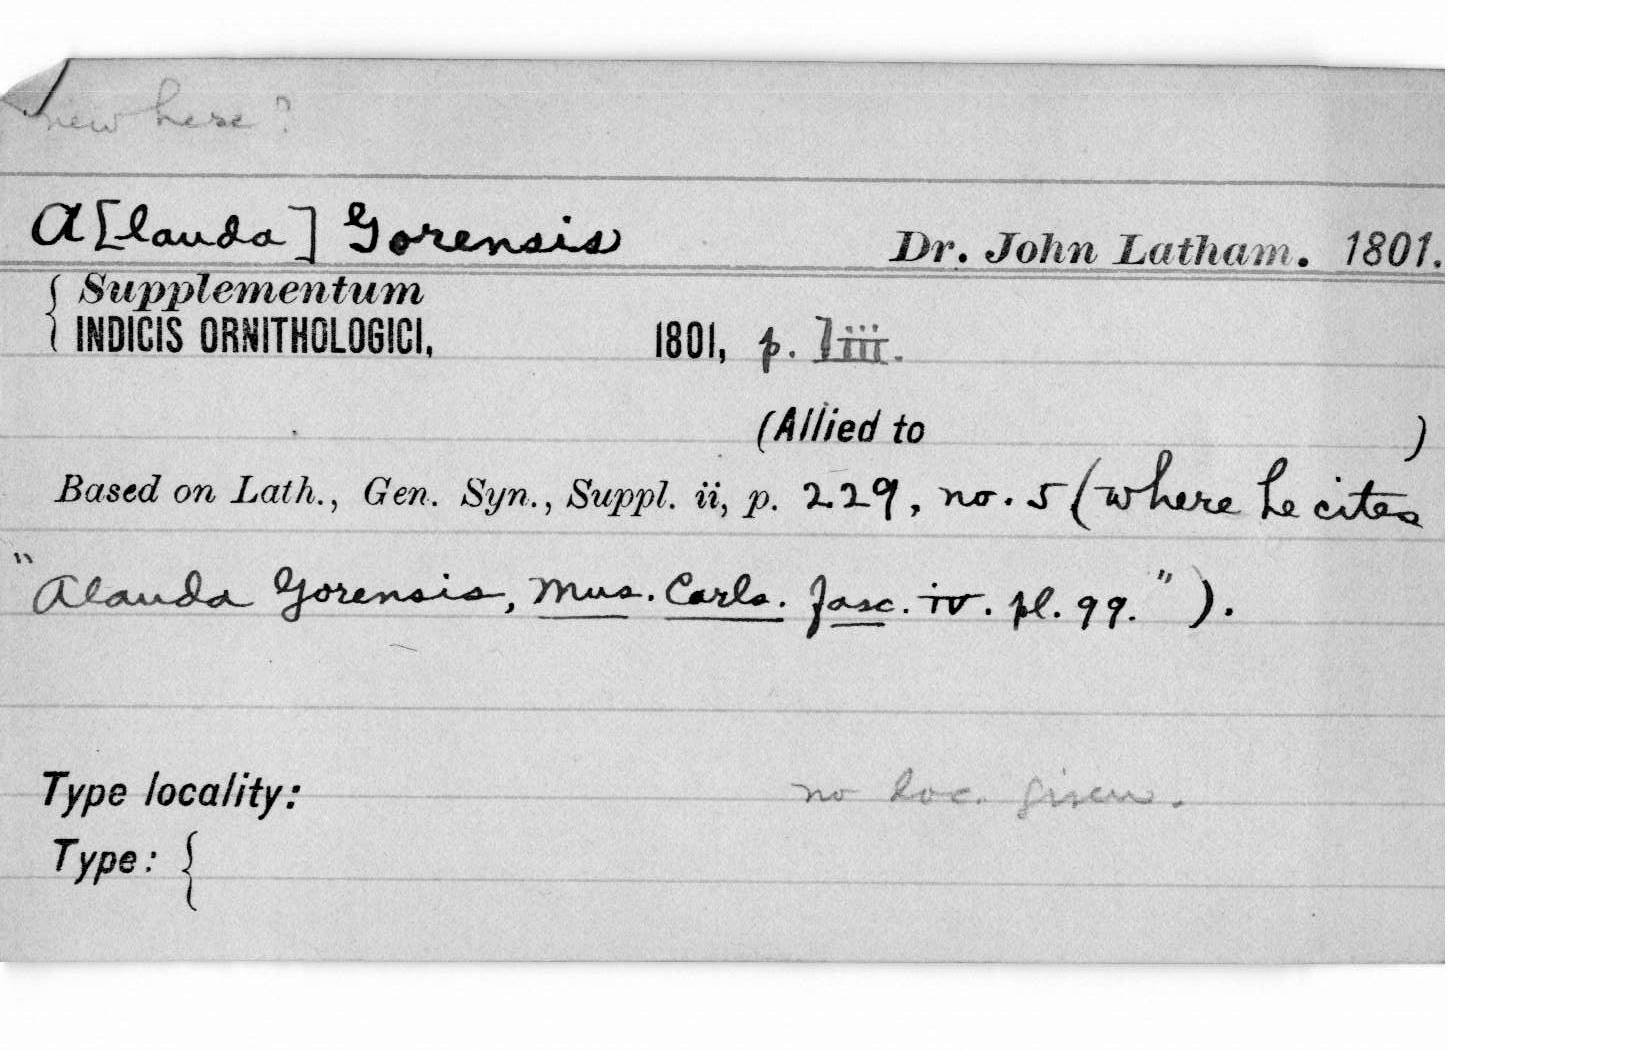 new here?
A[lauda] Gorensis Dr. John Latham. 1801.
{ Supplementum
INDICIS ORNITHOLOGICI, 1801, p. liii.
(Allied to )
Based on Lath., Gen. Syn., Suppl. ii, p. 229, no. 5 (where he cites
"Alauda Gorensis, Mus. Carls. fasc. iv. pl. 99.").
Type locality: no loc. given.
Type: {